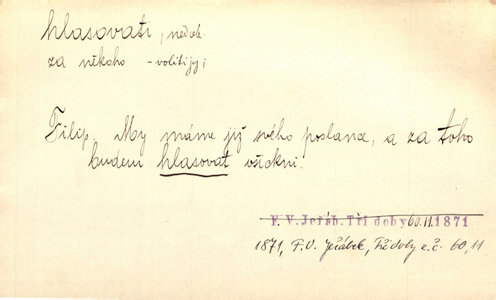 hlasovati, nedok.
za někoho - voliti jej;
Filip. My máme již svého poslance, a za toho
budem hlasovat všickni.
F. V. Jeřáb. Tři doby 60.11. 1871
1871, F. V. Jeřábek, Tři doby e.č. 60, 11